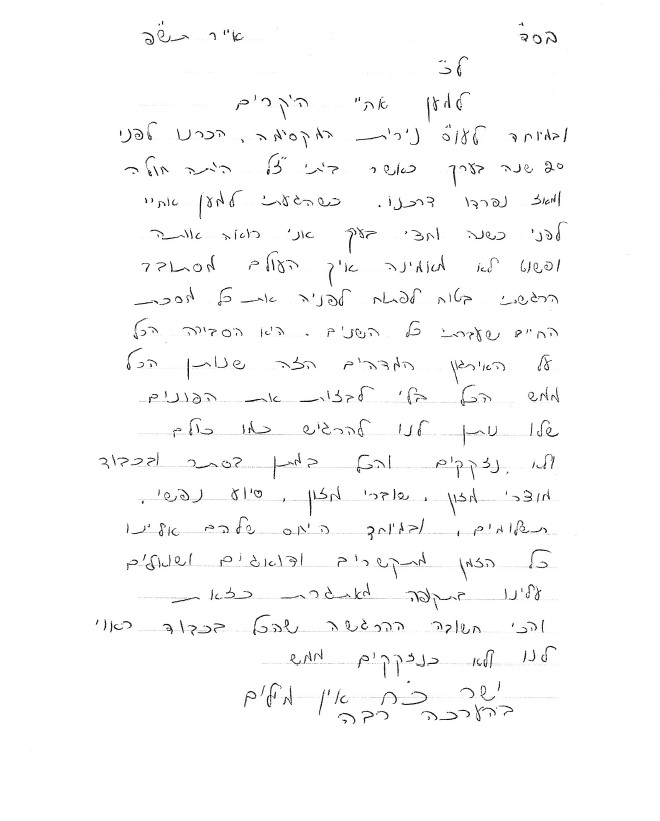 בס"ד אייר תש"פ
לכ'
למען אחיי היקרים
ובמיוחד לעו"ס נירית המקסימה, הכרנו לפני
20 שנה בערך כאשר ביתי ז"ל היתה חולה
ומאז נפרדו דרכנו. כשהגעתי למען אחיי
לפני כשנה וחצי בערך אני רואה אותה
ופשוט לא מאמינה איך העולם מסתובב
הרגשתי בטוח לפתוח לפניה את כל מסכת
החיים שעברתי כל השנים. היא הסבירה הכל
על האירגון המדהים הזה שנותן הכל
ממש הכל בלי לבזות את הפונים
שלו נותן לנו להרגיש כמו כולם
ולא נזקקים והכל במתן בסתר ובכבוד
מוצרי מזון, שוברי מזון, סיוע נפשי,
תשלומים, ובמיוחד היחס שלהם אלינו
כל הזמן מתקשרים ודואגים ושואלים
עלינו בתקופה מאתגרת כזאת
והכי חשובה ההרגשה שהכל בכבוד ראוי
לנו ולא כנזקקים ממש
ישר כ"ח אין מילים
בהערכה רבה